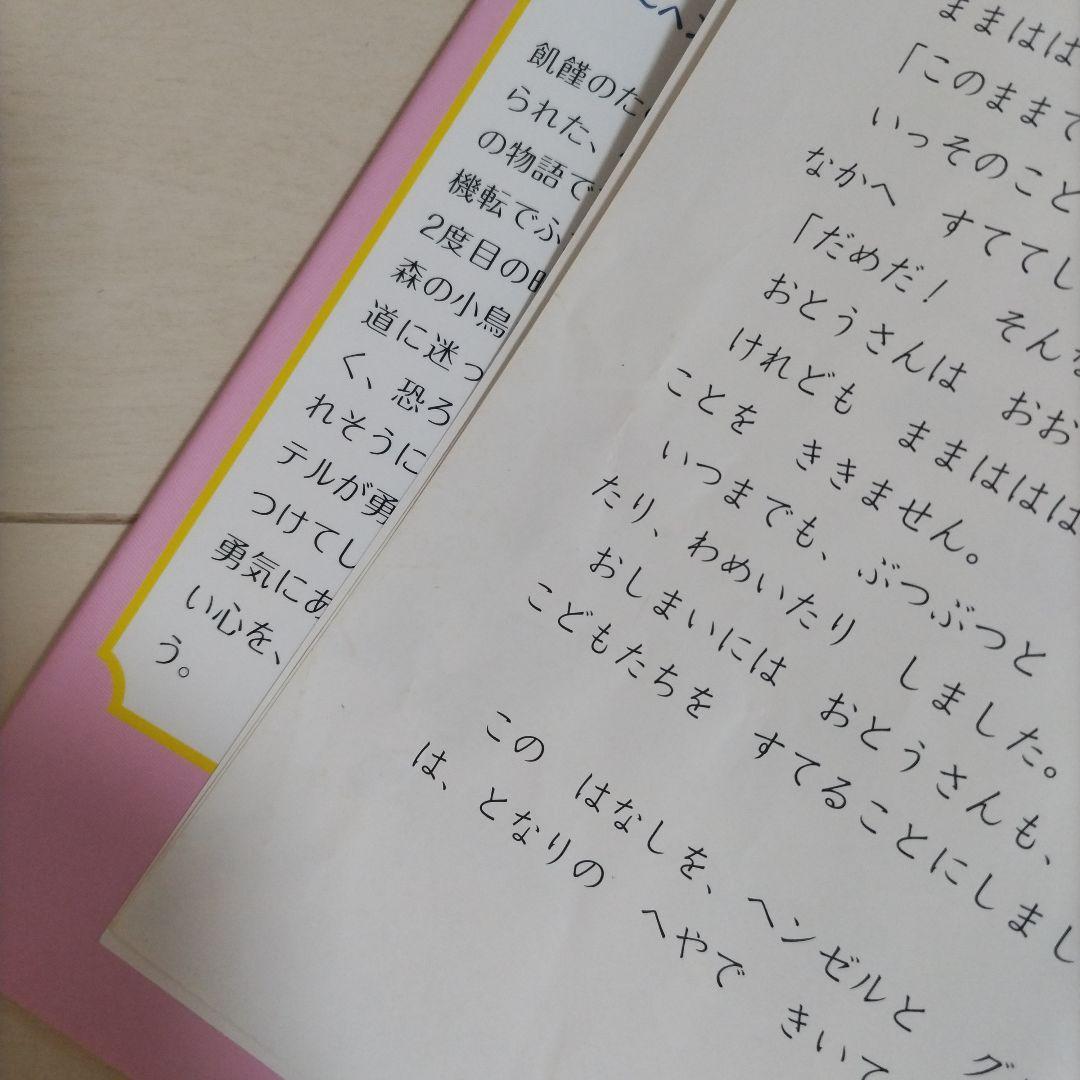 〜ヘン
飢饉のため
られた、
の物語で
機転でふ
2度目の時
森の小鳥
道に迷っ
く、恐ろ
れそうに
テルが勇
つけてし
勇気にあ
い心を、
う。
ままはは
「このままで
いっそのこと
なかへ すててし
「だめだ! そんな
おとうさんは おお
けれども ままははは
ことを ききません。
いつまでも、ぶつぶつと
たり、わめいたり しました。
おしまいには おとうさんも、
こどもたちを すてることにしまし
この はなしを、ヘンゼルと グ
は、となりの へやで きいて